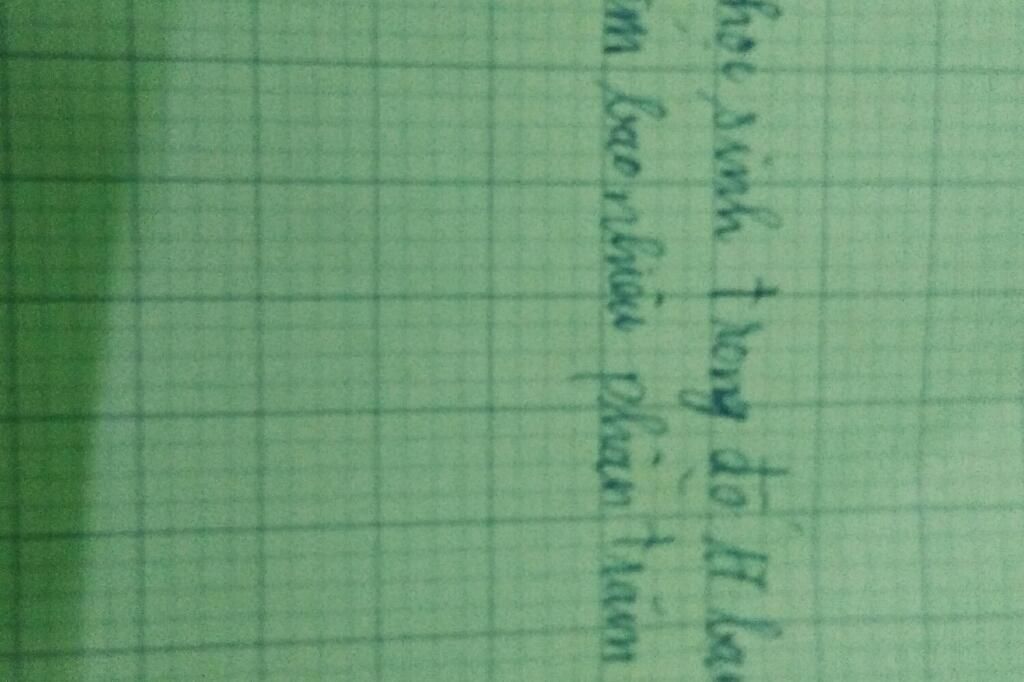 học sinh trong đó H
bao nhiêu phần trăm